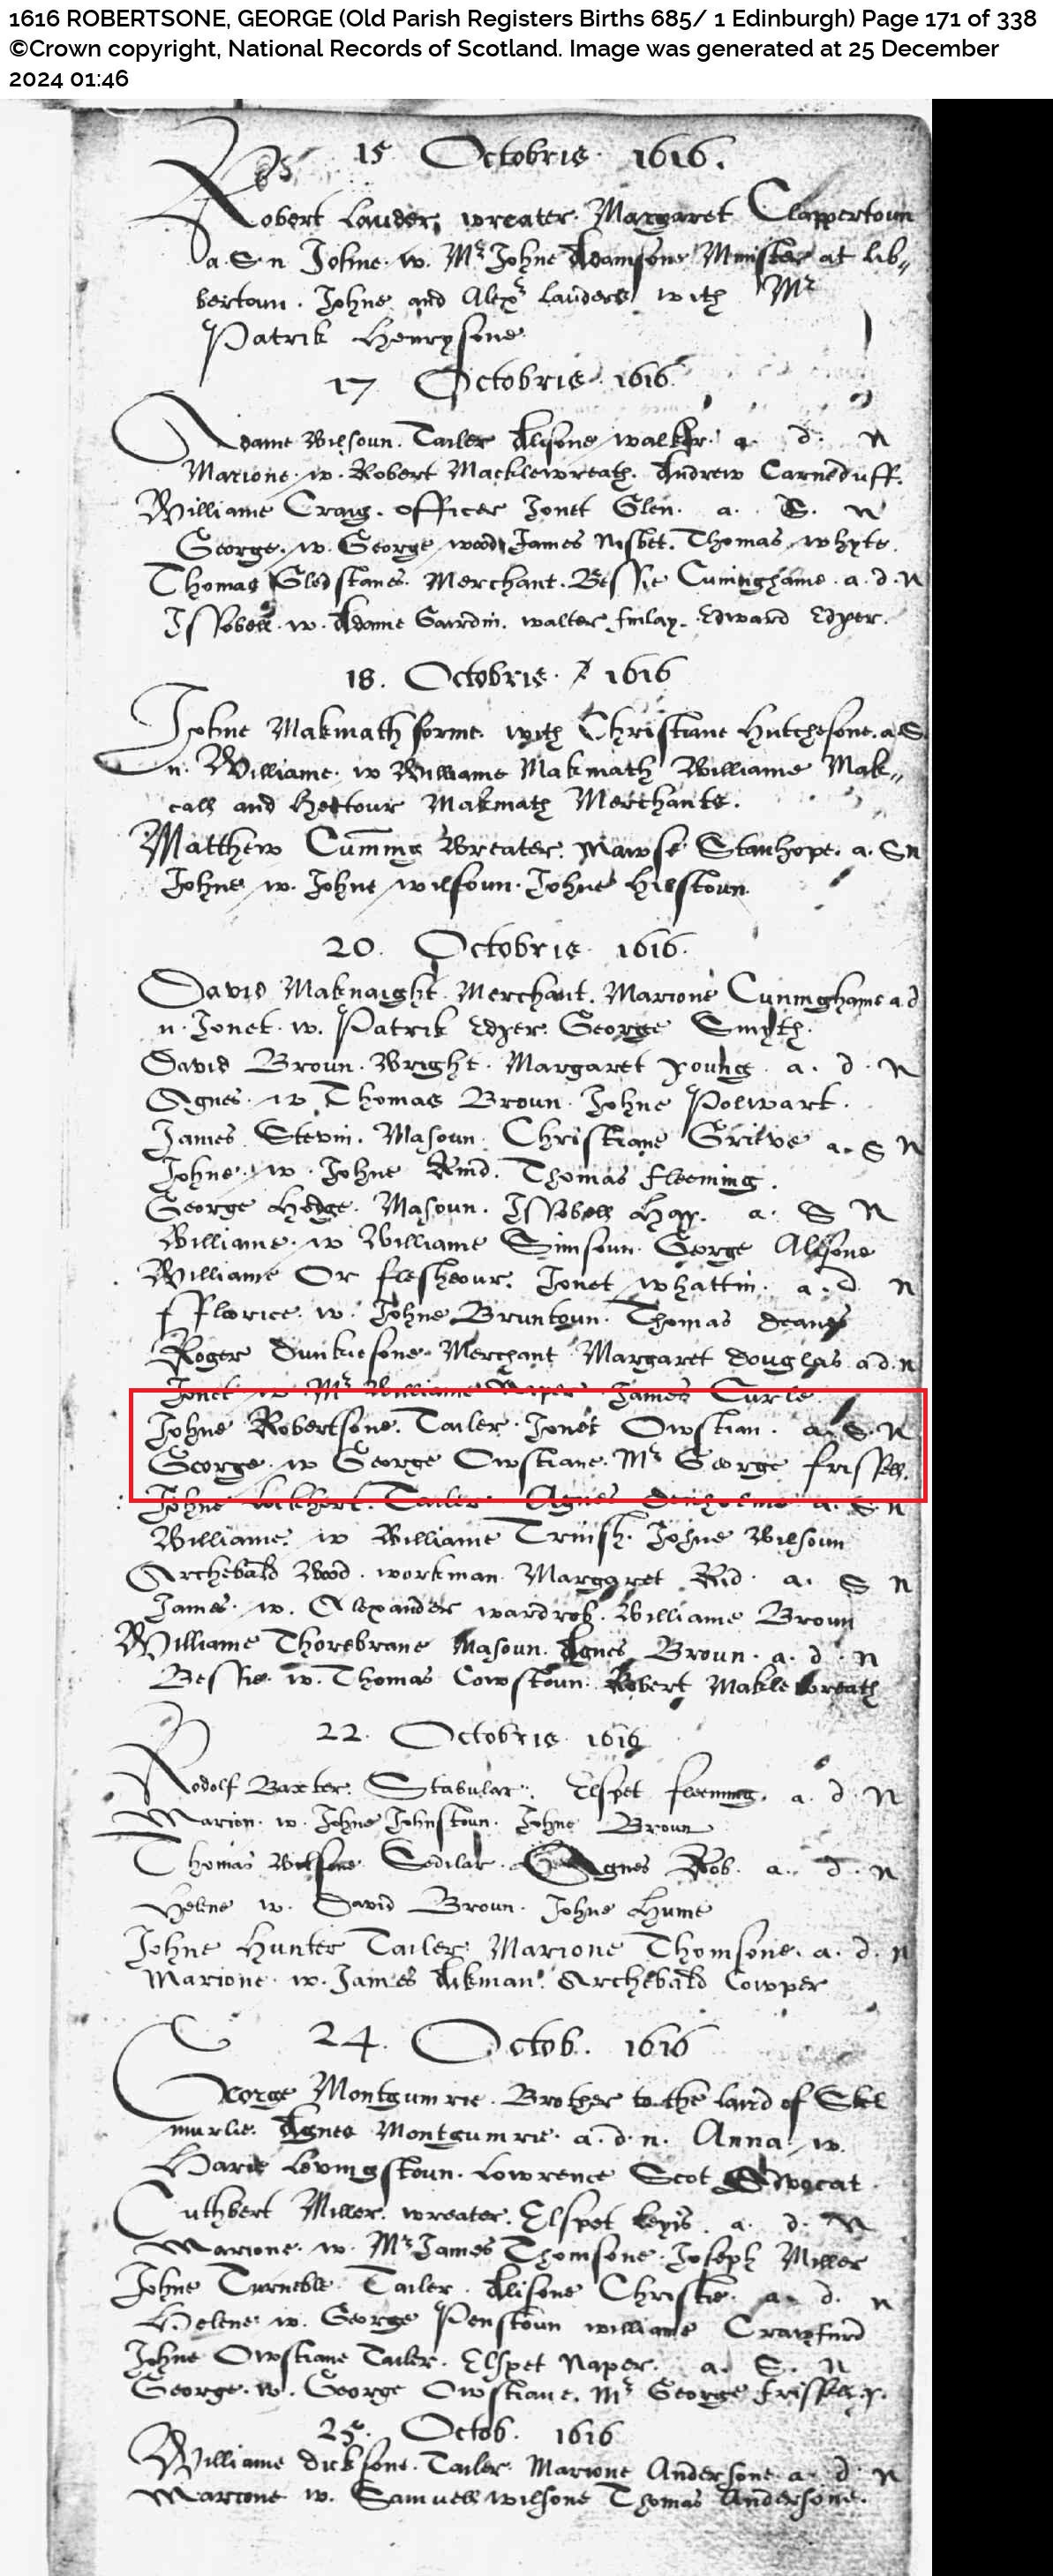 1616 ROBERTSONE, GEORGE (Old Parish Registers Births 685/ 1 Edinburgh) Page 171 of 338
©Crown copyright, National Records of Scotland. Image was generated at 25 December
2024 01:46
15 Octobris 1616.
Robert Lauder, wreater. Margaret Clappertoun
a. S. n Johne. w. Mr Johne Adamsone Minister at Lib„
bertoun. Johne and Alexr Lauders with Mr
Patrik Henrysone
17 Octobris. 1616
Adame Wilsoun. Tailer Alysone walker. a. d. n
Marione. w. Robert Macklewreath. Andrew Carneduff.
Williame Craig. officer Jonet Glen. a. S. n
George. w. George wood James Nisbet. Thomas whyte.
Thomas Gledstanes. Merchant. Bessie Cuninghame. a. d. n
Issobell. w. Adame Gairdin. walter finlay. Edward Edzer.
18. Octobris. 1616
Johne Makmath with Christiane Hutchesone. a. S
n. Williame. w Williame Makmath Williame Mak„
call and Hectour Makmath Merchants.
Matthew Cuming Wreater. Mawse Stanhope. a. S n
Johne w. Johne wilsoun. Johne Hilstoun
20. Octobris. 1616.
David Maknaight. Merchant. Marione Cuninghame a. d
n. Jonet. w. Patrik Edzer. George Smyth.
David Broun. Wright. Margaret young. a. d. n
Agnes. w Thomas Broun. Johne Polwart.
James Stevin. Masoun. Christiane Grieve a. S n
Johne. w. Johne Thomas fleeming.
George Hodge. Masoun. Issobell Hay. a. S n
Williame. w Williame Simsoun. George Alysone
Williame Or fleshour. Jonet whattin. a. d n
fflorice. w. Johne Bruntoun. Thomas deanes
Roger Dunkiesone. Merchant Margaret douglas a d. n
Jonet w Mr Williame Naper James Curle
Johne Robertsone. Tailer. Jonet Owstian. a. S. n
George. w George Owstiane. Mr George frissell.
Johne Lokhert. Tailer. Agnes a. S n
Williame. w Williame Johne Wilsoun
Archebald Wod. workman. Margaret Rid. a. S n
James. w. Alexander wardrob. Williame Broun
Williame Thorebrane Masoun. Agnes Broun. a. d. n
Bessie. w. Thomas Cowstoun. Robert Maklewreath
22. Octobris. 1616
Rodolf Baxter. Stabular. Elspet fleeming. a. d. n
Marion. w. Johne Johnstoun. Johne Broun
Thomas Wilsone Sedilar. Agnes Rob. a. d. n
Helene w. David Broun. Johne Hume
Johne Hunter Tailer. Marione Thomsone. a. d. n
Marione. w. James Aikman. Archebald Cowper
24. Octob. 1616
George Montgumrie. Brother to the laird of Skel
murlie. Agnes Montgumrie. a. d. n. Anna. w.
Harie Levingstoun. Lowrence Scot Advocat.
Cuthbert Miller. wreater. Elspet keyis. a. d. n
Marione. w. Mr James Thomsone. Joseph Miller
Johne Turneble. Tailer. Alisone Christie. a. d. n
Helene w. George Penstoun williame Crawfurd
Johne Owstiane Tailer. Elspet Naper. a. S. n
George. w. George Owstiane. Mr George frissell. y.
25. Octob. 1616
Williame dicksone. Tailer. Marione Andersone a. d. n
Marione w. Samuell wilsone Thomas Andersone.